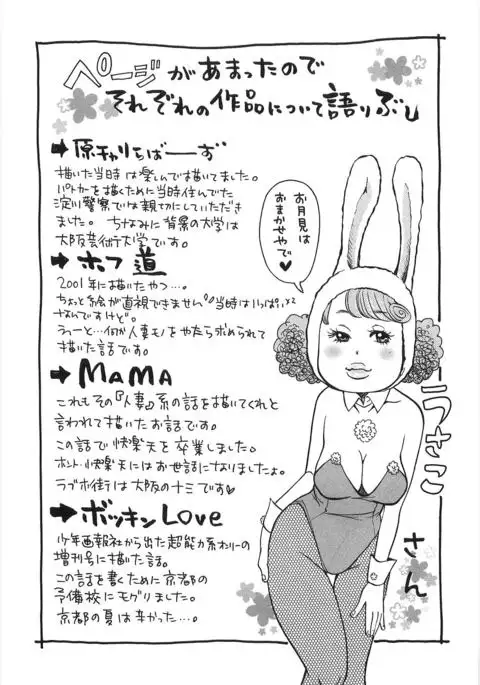 ページがあまったので
それぞれの作品について語りぶし
➡原チャリをばーーず
描いた当時は楽しんで描いてました。
パトカーを描くために当時住んでた
淀川警察では親切にしていただき
ました。 ちなみに背景の大学は
大阪芸術大学です。
➡ホフ道
2001年に描いたやつ…。
ちょっと絵が直視できません 当時はいっぱい
なんですけど。
うーと…何か人妻モノをやたら求められて
描いた話です。
➡MAMA
これもその『人妻』系の話を描いてくれと
言われて描いたお話です。
この話で快楽天を卒業しました。
ホント・快楽天にはお世話になりましたよ。
ラブホ街は大阪の十三です♡
➡ボッキンLove
少年画報社から出た超能力系オンリーの
増刊号に描いた話。
この話を書くために京都の
予備校にモグリました。
京都の夏は辛かった…。
お月見は
おまかせやで
♡
うさこ
さん